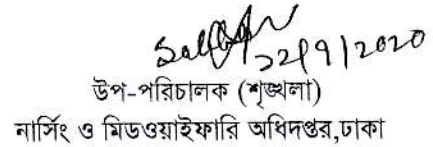 22/9/2020
উপ-পরিচালক (শৃঙ্খলা)
নার্সিং ও মিডওয়াইফারি অধিদপ্তর,ঢাকা